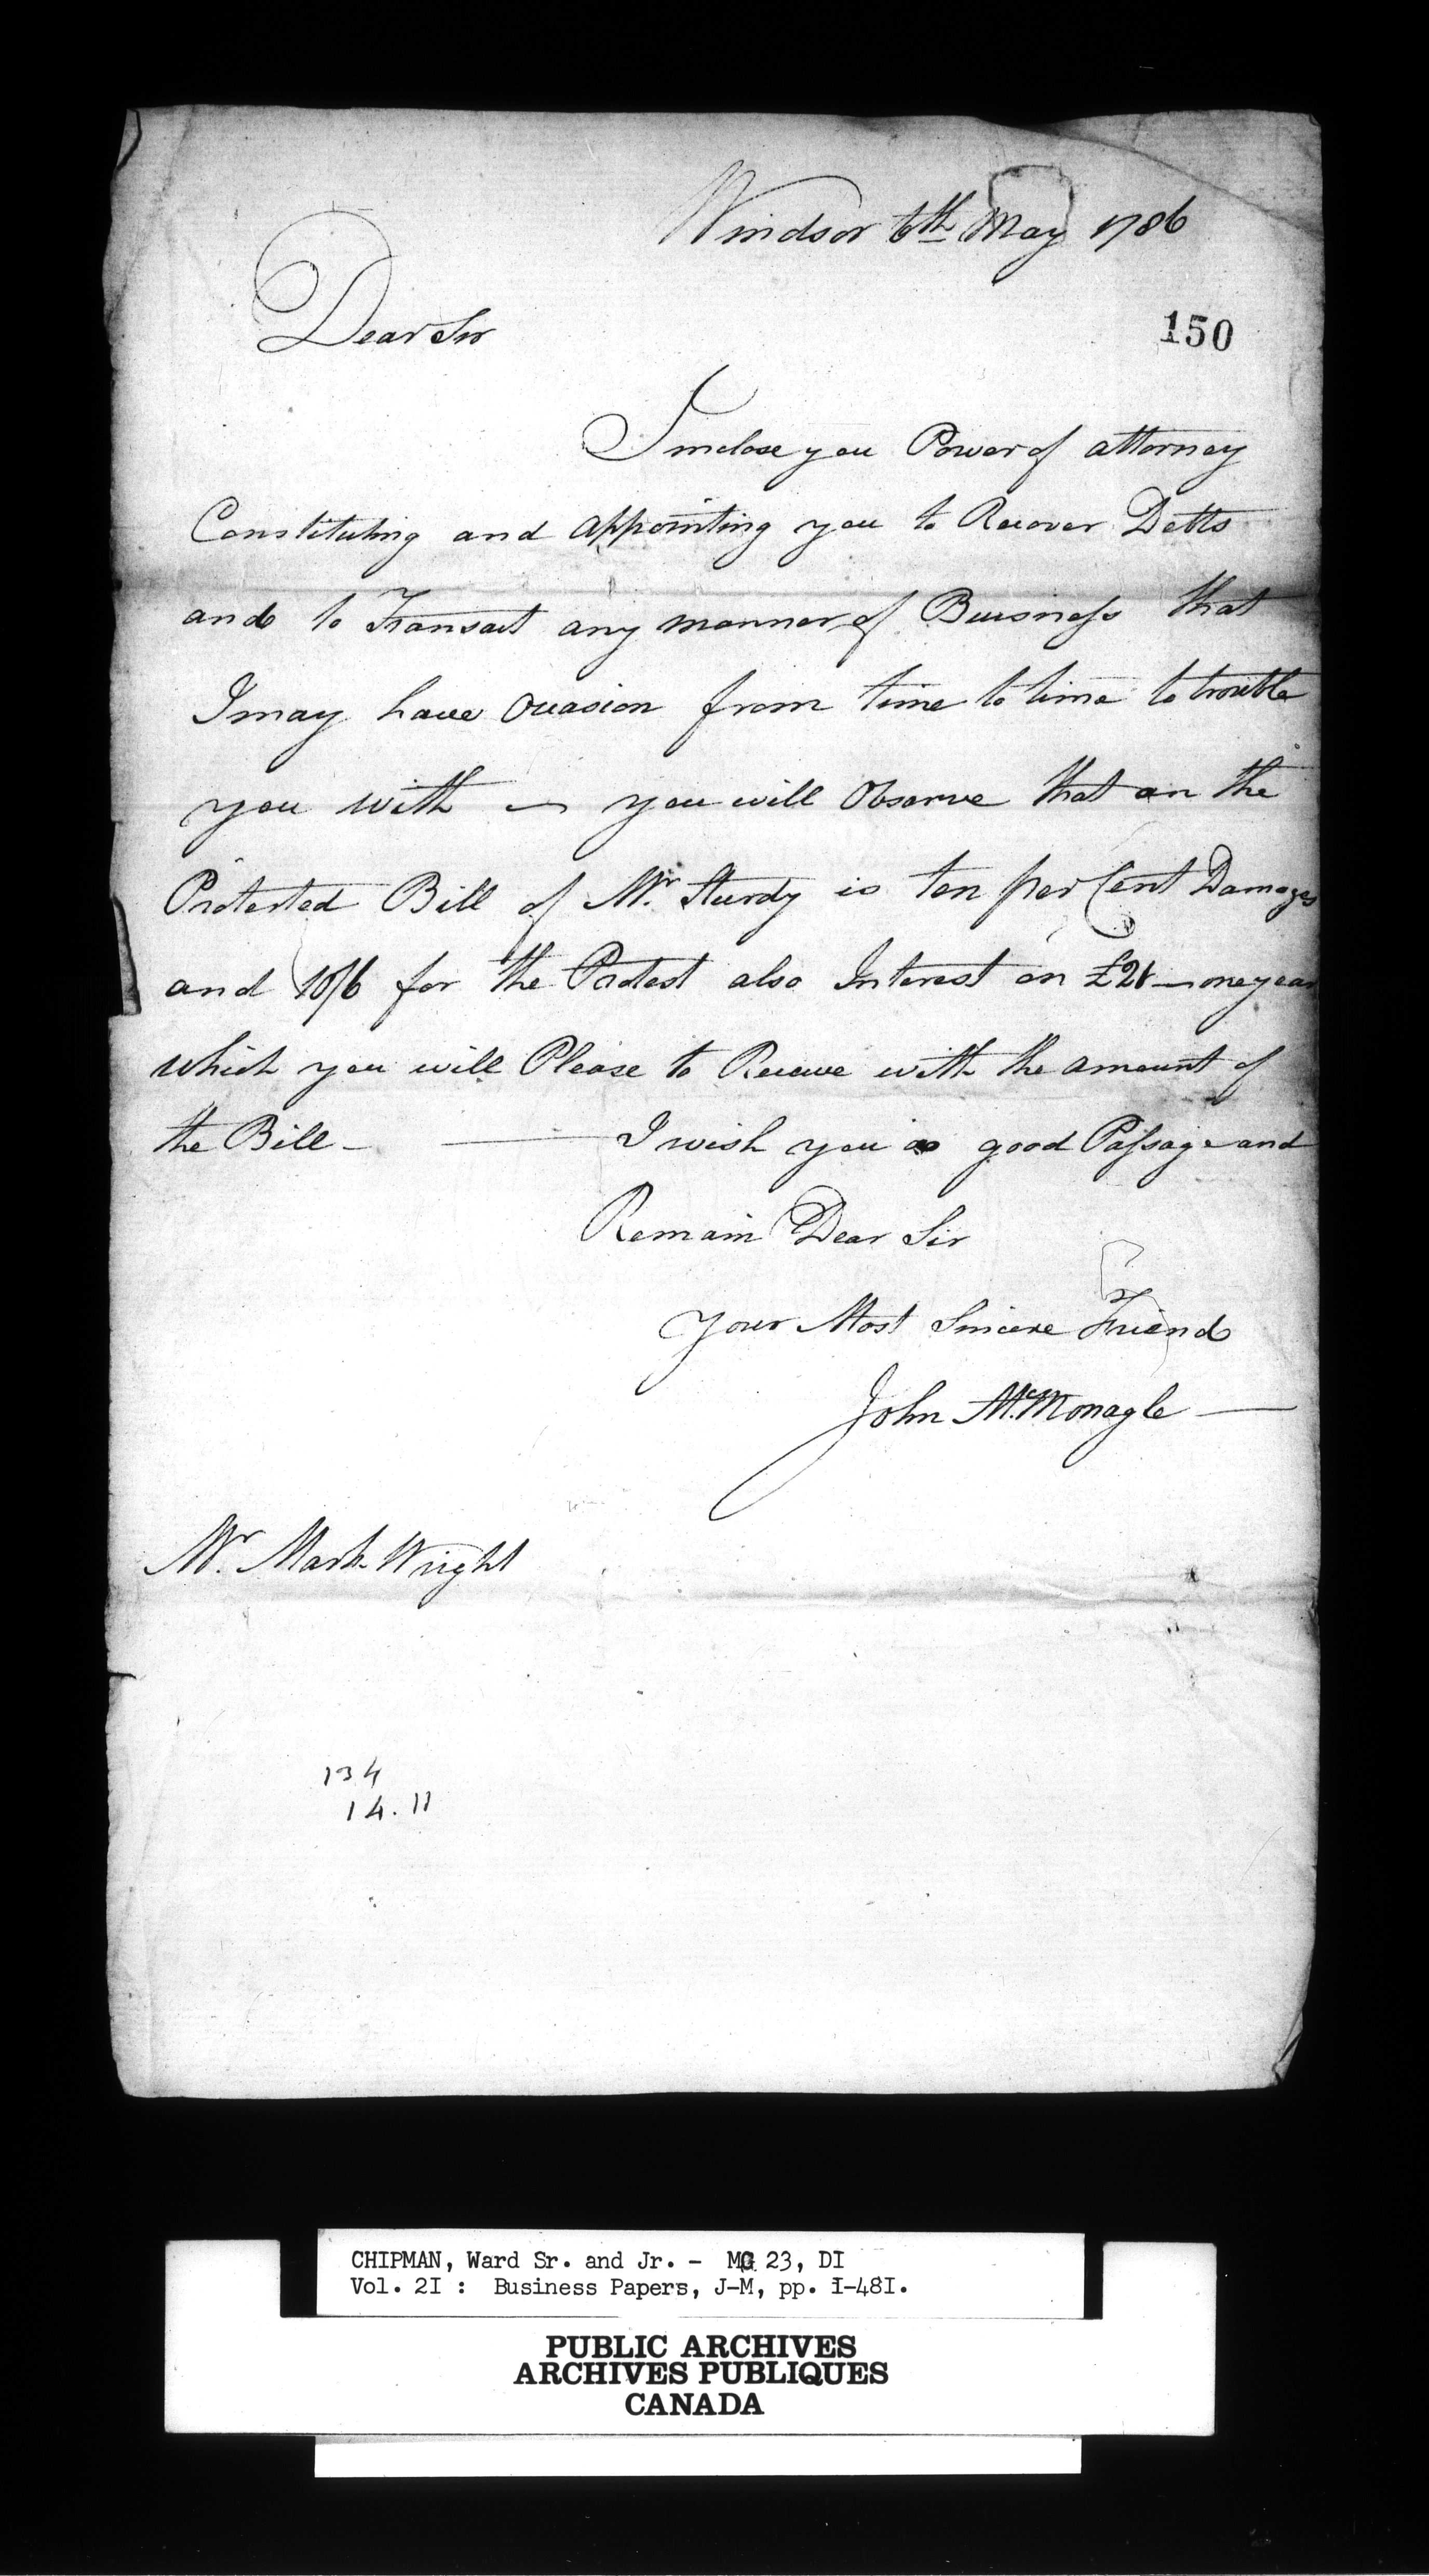 Windsor 6th May 1786
Dear Sir
150
I inclose you Power of attorney
Constituting and appointing you to Recover Debts
and to Transact any manner of Buisness that
I may have Occasion from time to time to trouble
you with — you will Observe that on the
Protested Bill of Mr. Sturdy is ten per Cent Damages
and 10/6 for the Protest also Interest on — one year
which you will Please to Receive with the amount of
the Bill — I wish you a good Passage and
Remain Dear Sir
your Most Sincere Friend
John McMonagle —
Mr. Mark Wright
134
14.11
CHIPMAN, Ward Sr. and Jr. - MG 23, DI
Vol. 2I : Business Papers, J-M, pp. I-48I.
PUBLIC ARCHIVES
ARCHIVES PUBLIQUES
CANADA